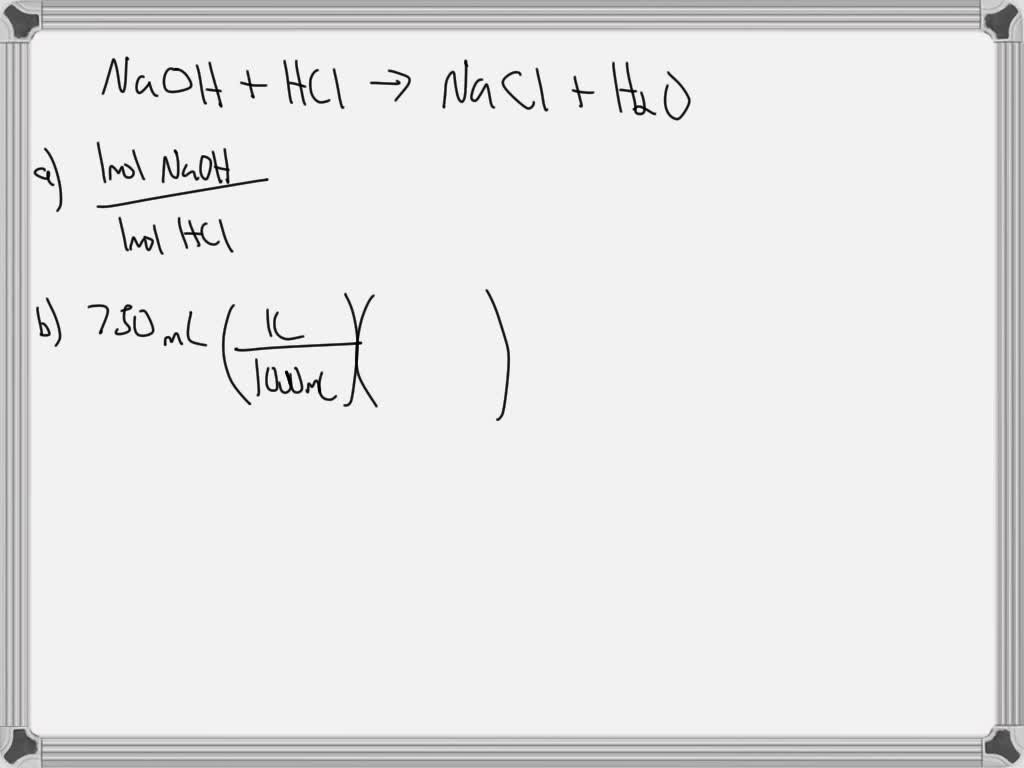 NaOH + HCl → NaCl + H2O
a) 1mol NaOH
1mol HCl
b) 750 mL ( 1L )( )
1000mL